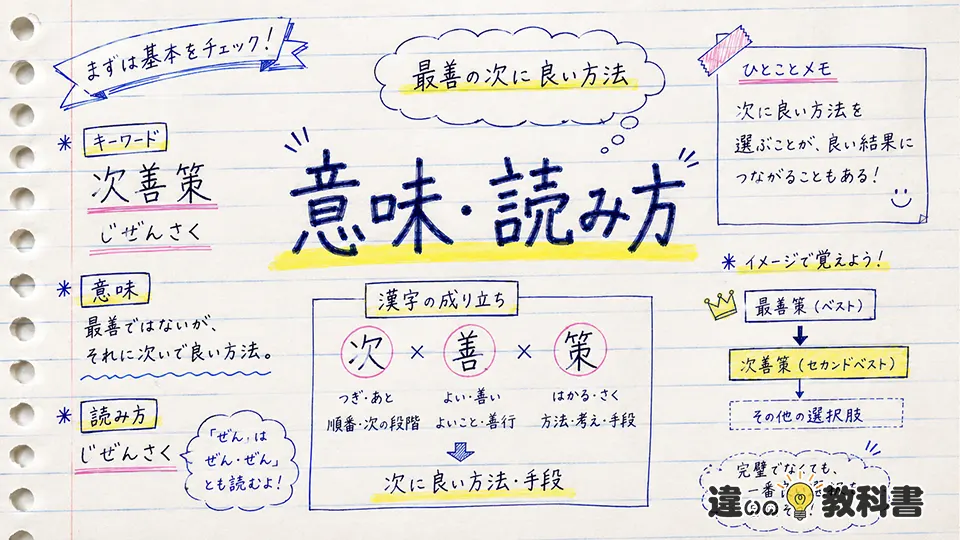 まずは基本をチェック!
最善の次に良い方法
ひとことメモ
次に良い方法を
選ぶことが、良い結果に
つながることもある!
* キーワード
次善策
じぜんさく
意味・読み方
* 意味
最善ではないが、
それに次いで良い方法。
* 読み方
じぜんさく
「ぜん」は
ぜん・ぜん」
とも読むよ!
漢字の成り立ち
次 × 善 × 策
つぎ・あと よい・善い はかる・さく
順番・次の段階 よいこと・善行 方法・考え・手段
次に良い方法・手段
* イメージで覚えよう!
最善策(ベスト)
次善策(セカンドベスト)
その他の選択肢
完璧でなくても、
一番
違いの教科書